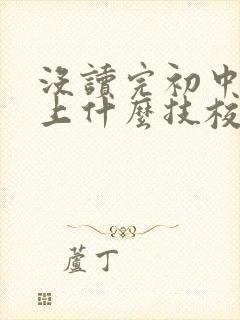 沒讀完初中
上什麼技校
蘆丁